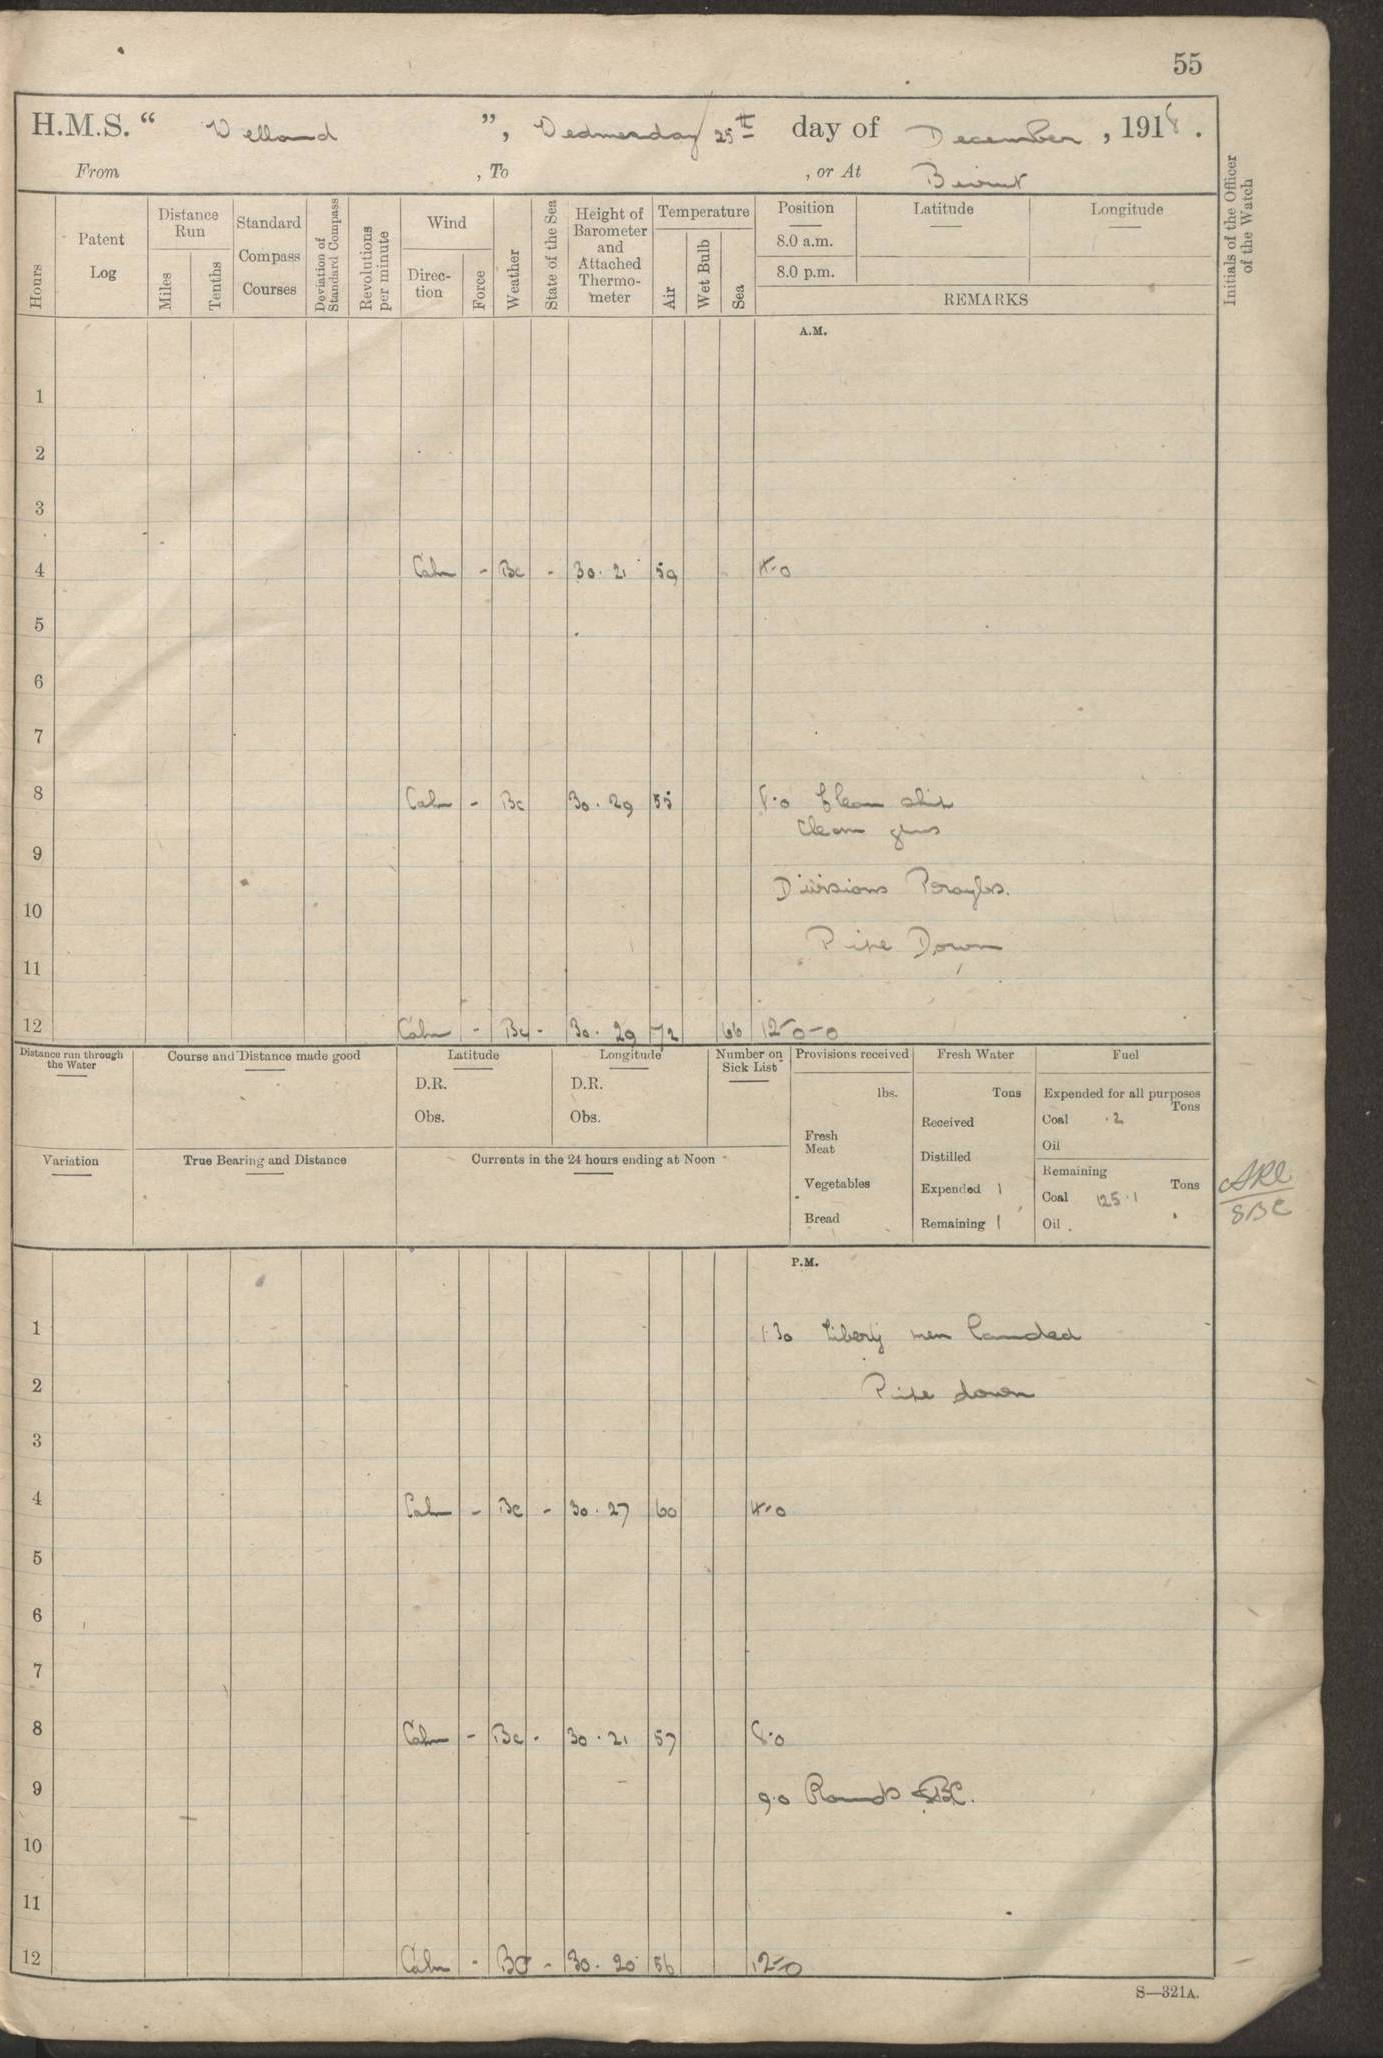 55
H.M.S. “ Welland ”, Wednesday 25th day of December , 1918 .
From , To , or At Beirut
Hours
Patent Log
Distance Run
Miles
Tenths
Standard Compass Courses
Deviation of Standard Compass
Revolutions per minute
Wind
Direction
Force
Weather
State of the Sea
Height of Barometer and Attached Thermometer
Temperature
Air
Wet Bulb
Sea
Position
8.0 a.m.
8.0 p.m.
Latitude
Longitude
REMARKS
Initials of the Officer of the Watch
A.M.
1
2
3
4 Calm - Bc - 30.21 59 4-0
5
6
7
8 Calm - Bc 30.29 55 8.0 Clean ship
Clean guns
9
Divisions Prayers.
10
Pipe Down
11
12 Calm - Bc - 30.29 72 66 12-0-0
Distance run through the Water
Course and Distance made good
Latitude
D.R.
Obs.
Longitude
D.R.
Obs.
Number on Sick List
Provisions received
lbs.
Fresh Meat
Vegetables
Bread
Fresh Water
Tons
Received
Distilled
Expended 1
Remaining 1
Fuel
Expended for all purposes
Tons
Coal .2
Oil
Remaining
Tons
Coal 125.1
Oil
Variation
True Bearing and Distance
Currents in the 24 hours ending at Noon
SBC
P.M.
1 1.30 Liberty men landed
2 Pipe down
3
4 Calm - Bc - 30.27 60 4-0
5
6
7
8 Calm - Bc - 30.21 57 8.0
9 9.0 Rounds SBC.
10
11
12 Calm - BC - 30.20 56 12-0
S—321A.